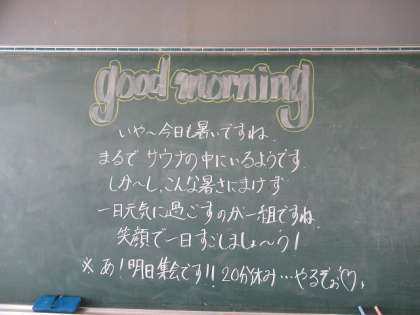 good morning
いや〜今日も暑いですね.
まるでサウナの中にいるようです.
しか〜し、こんな暑さにまけず
一日元気に過ごすのが一組ですね.
笑顔で一日すごしましょ〜う!
※あ!明日集会です!! 20分休み…やるぞぉ♡、